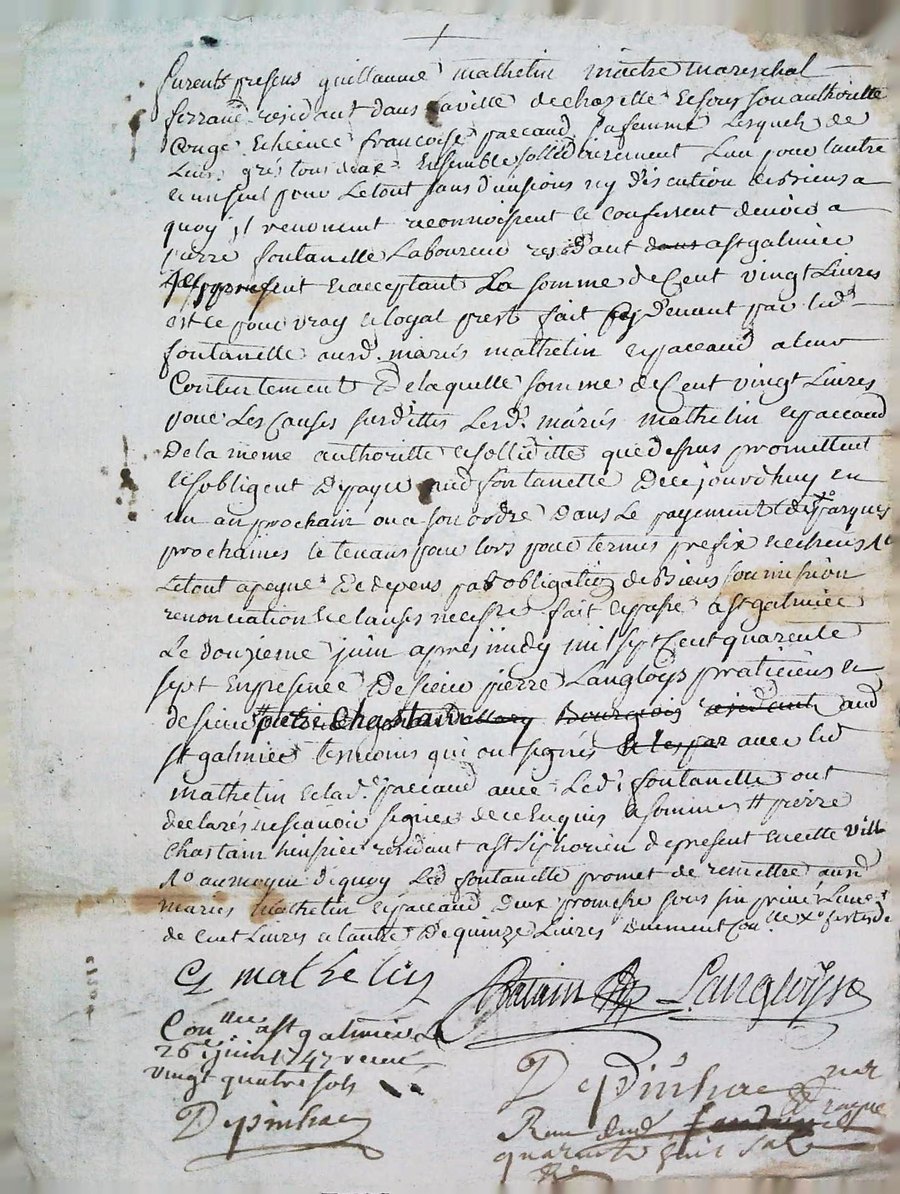 furents presens guillaume mathelin maitre mareschal
ferrand residant dans la ville de chazelle Et sous son authoritte
Conge Et licence francoise paccaud sa femme Lesquels de
Leurs grés tous deux Ensemble sollidairement L'un pour l'autre
et un seul pour Le tout sans divisions ny discution de biens a
quoy il renoncent reconnoissent et confessent devoir a
pierre fontanelle Laboureur residant dans a st galmier
present Et acceptant La somme de Cent vingt Livres
est ce pour vray et loyal prest fait cy devant par led.
fontanelle ausd. mariés mathelin et paccaud a leur
Contentement De laquelle somme de Cent vingt Livres
pour Les Causes susdittes Lesd. mariés mathelin et paccaud
De la meme authoritte et solliditte que dessus promettent
Et s'obligent De payer aud fontanelle De ce jourdhuy en
un an prochain ou a son ordre Dans Le payement des parques
prochaines le tenans pour lors pour termes prefix et echeus
Le tout a peyne De depens par obligation de Biens soumission
renonciation Et clauses necess.res fait et passé a st galmier
Le douzieme juin apres midy mil sept Cent quarente
sept En presence De sieur pierre Langloys praticiens et
de sieur pierre Chastain Bourgois residant aud
st galmier temoins qui ont signés avec led
mathelin Et lad. paccaud avec Led. fontanelle ont
declarés ne scavoir signer de ce Enquis et sommés # pierre
Chastain huissier residant a st siphorien de present en cette ville
au moyen De quoy Led fontanelle promet de remettre ausd
mariés mathelin et paccaud Deux promesse sous sin privé L'une
de Cent Livres et l'autre De quinze Livres
G mathelin Chatain Langloys
Con.llé a st galmier Le
26e juin 1747 receu
vingt quatre sols
Depinhac
Depinhac nre R